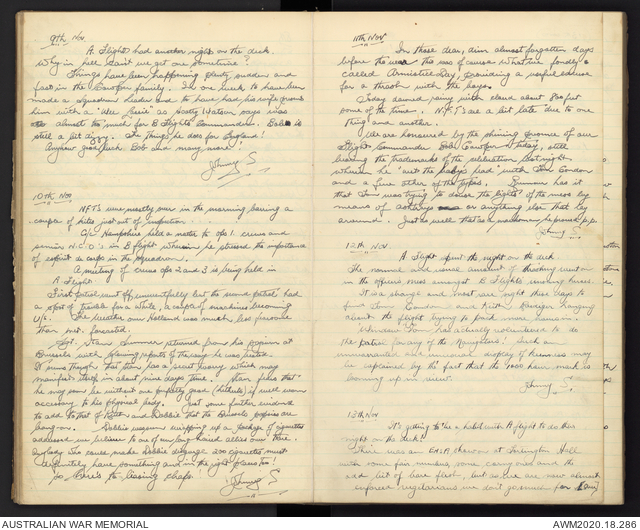 9th Nov.
A Flight had another night on the deck.
Why in hell can't we get one sometime?
Things have been happening plenty sudden and
fast in the Cawtorn family. In one week to have been
made a Squadron leader and to have had his wife present
him with a 'Wee lassie' as Hasty Watson says was
almost too much for B Flights Commander. Bob is
still a bit dizzy. The things he does for England!
Anyhow good luck Bob and many more!
Johnny S
10th Nov
N.F.T.s were mostly over in the morning barring a
couple of kites just out of inspection.
C/c Hampshire held a natter to ops 1. crews and
senior N.C.O's in B flight wherein he stressed the importance
of esprit de corps in the squadron.
A meeting of crews ops 2 and 3 is being held in
A Flight.
First patrol went off uneventfully but the second patrol had
a spot of trouble for a while, a couple of machines becoming
U/S. The weather over Holland was much less fearsome
than met. forecasted.
Sgt. Stan Sumner returned from his sojourn at
Brussels with glowing reports of the way he was treated.
It seems though that Stan has a secret worry which may
manifest itself in about nine days time. Stan feels that
he may soon be without one of pretty good (hitherto) & well worn
accessory to his physical body. Just some further evidence
to add to that of Keith and Robbie that the Brussels popsies are
bang-on. Robbie was seen wrapping up a package of cigarettes
addressed we believe to one of our long haired allies over there.
Any lady who could make Robbie disgorge 200 cigarettes must
definitely have something and in the right places too!
So here's to leasing chaps!
Johnny S
11th Nov
In those dear, dim almost forgotten days
before the war the 11th of November was what we fondly
called Armistice Day, providing a useful excuse
for a thrash with the boys.
Today dawned rainy with cloud about 800 feet
some of the time. N.F.T.s are a bit late due to one
thing and another.
We are honoured by the shining presence of our
Flight Commander Bob Cawtorn today, still
bearing the trademarks of the celebration last night
wherein he wet the baby's head with Tom Condon
and a few other of the types. Rumour has it
that he was trying to douse the lights of the mess by
means of ashtrays or anything else that lay
around. Just as well that as a marksman he proved p.p.
Johnny S.
12th Nov
A Flight spent the night on the deck
The normal and usual amount of thrashing went on
in the officers mess amongst B Flights smoking heroes.
It is a change and treat over night these days to
find Tom Condon and Keith Naviger hanging
about the flight trying to pinch more hours in.
'Window' Tom has actually volunteered to do
the patrol for any of the Naughties! Such an
unwarranted and unusual display of keenness may
be explained by the fact that the 1000 hour mark is
looming up in view.
Johnny S.
13th Nov
It's getting to be a habit with A flight to do this
night on the deck!
There was an ENSA show on at Fullington Hall
with some fair musicians, some corny ones and the
odd bit of bare flesh, but as we are now almost
enforced vegetarians we don't go much for raw
AUSTRALIAN WAR MEMORIAL
AWM2020.18.286